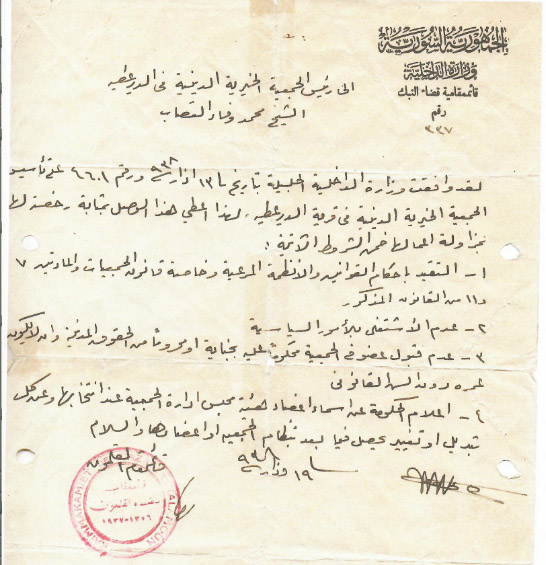 الجمهورية السورية
وزارة الداخلية
قائممقامية قضاء النبك
رقم
٣٣٧
الى رئيس الجمعية الخيرية الدينية في الدير عطيه
الشيخ محمد وفاء القصاب
لقد وافقت وزارة الداخلية الجليلة بتاريخ ١٣ اذار ٩٣٨ ورقم ٤٦٠١ على تأسيس
الجمعية الخيرية الدينية في قرية الدير عطيه، لهذا اعطي هذا الوصل بمثابة رخصة لها
بمزاولة اعمالها ضمن الشروط الآتية :
١- التقيد باحكام القوانين والانظمة المرعية وخاصة قانون الجمعيات والمادتين ٧
و١١ من القانون المذكور
٢- عدم الاشتغال بالأمور السياسية
٣- عدم قبول عضو في الجمعية محكوماً عليه بجناية او محروماً من الحقوق المدنية وان لا يكون
عمره دون السن القانوني
٤- اعلام الحكومة عن اسماء اعضاء هيئة مجلس ادارة الجمعية عند انتخابها وعن كل
تبديل او تغيير يحصل فيما بعد بنظام الجمعية او اعضائها والسلام
١٩ اذار ٩٣٨
قائممقام القلمون
KAIMMAKAM
قضاء القلمون
١٩٣٧-١٣٥٦